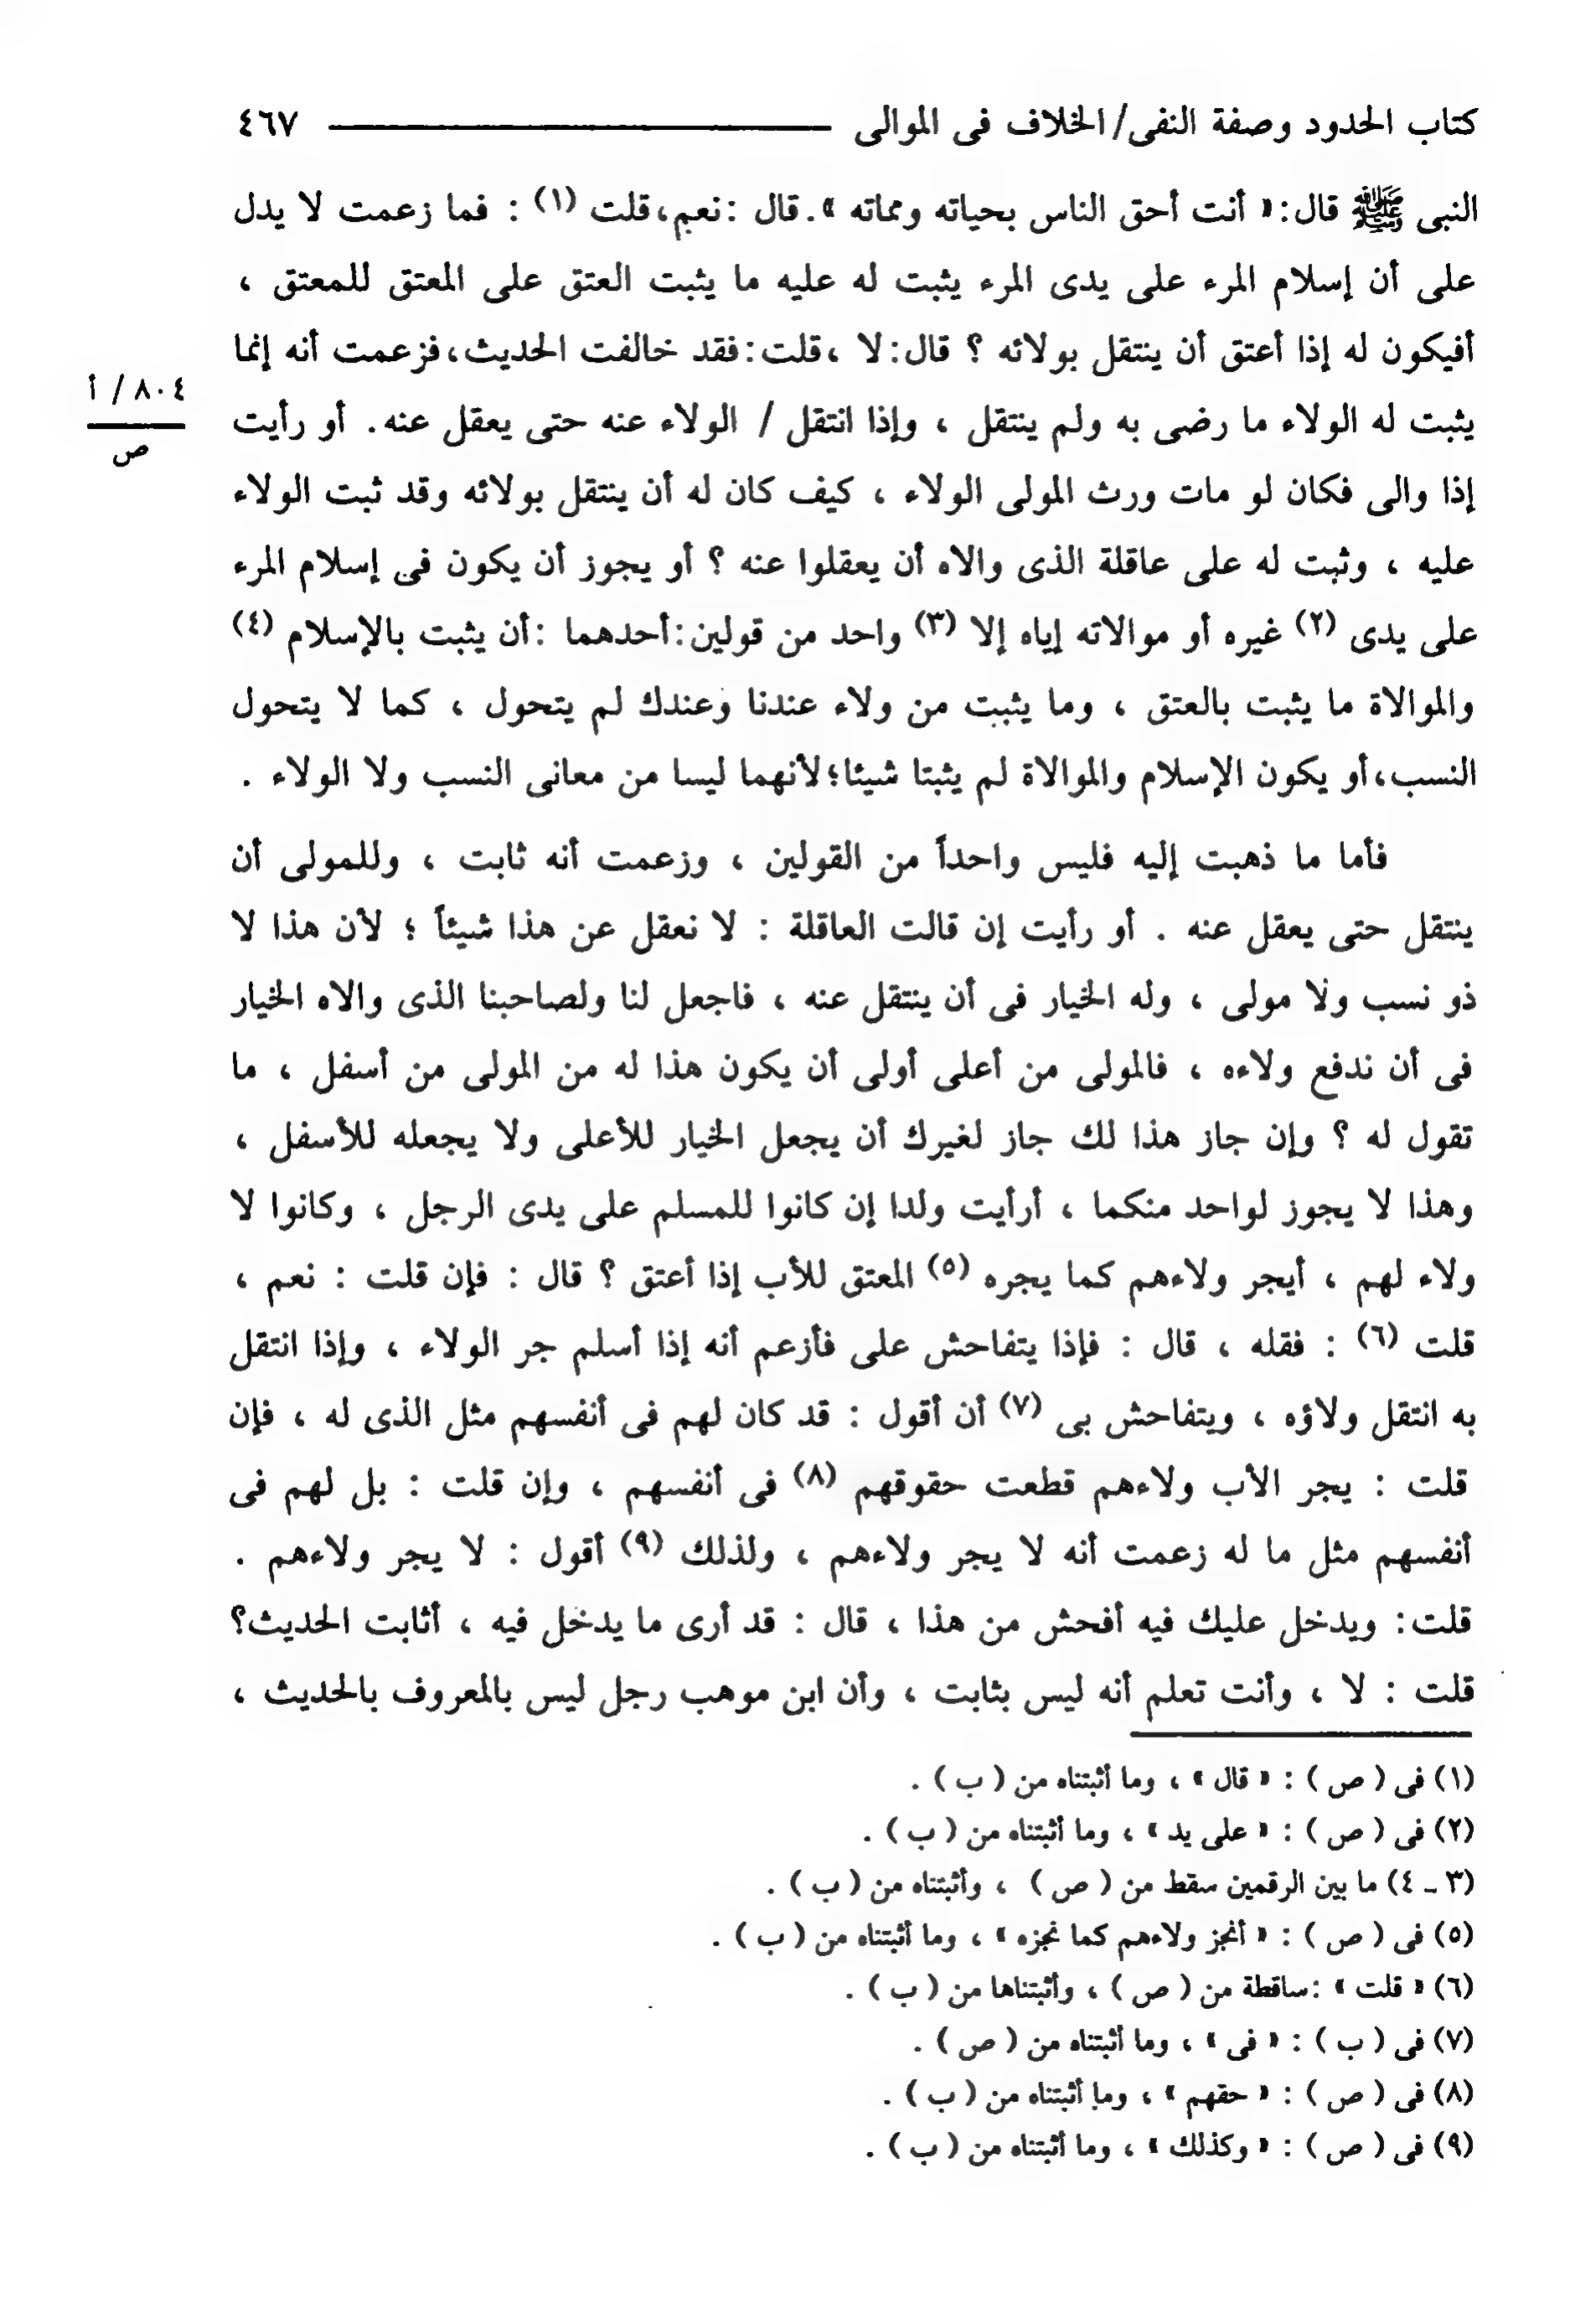 كتاب الحدود وصفة النفى/ الخلاف فى الموالى ــــــــــــــــ ٤٦٧
النبى ﷺ قال: « أنت أحق الناس بحياته ومماته ». قال : نعم، قلت (١) : فما زعمت لا يدل
على أن إسلام المرء على يدى المرء يثبت له عليه ما يثبت العتق على المعتق للمعتق ،
أفيكون له إذا أعتق أن ينتقل بولائه ؟ قال: لا ، قلت: فقد خالفت الحديث، فزعمت أنه إنما
يثبت له الولاء ما رضى به ولم ينتقل ، وإذا انتقل / الولاء عنه حتى يعقل عنه. أو رأيت
٨٠٤ / أ
ص
إذا والى فكان لو مات ورث المولى الولاء ، كيف كان له أن ينتقل بولائه وقد ثبت الولاء
عليه ، وثبت له على عاقلة الذى والاه أن يعقلوا عنه ؟ أو يجوز أن يكون فى إسلام المرء
على يدى (٢) غيره أو موالاته إياه إلا (٣) واحد من قولين: أحدهما : أن يثبت بالإسلام (٤)
والموالاة ما يثبت بالعتق ، وما يثبت من ولاء عندنا وعندك لم يتحول ، كما لا يتحول
النسب، أو يكون الإسلام والموالاة لم يثبتا شيئا؛ لأنهما ليسا من معانى النسب ولا الولاء .
فأما ما ذهبت إليه فليس واحداً من القولين ، وزعمت أنه ثابت ، وللمولى أن
ينتقل حتى يعقل عنه . أو رأيت إن قالت العاقلة : لا نعقل عن هذا شيئاً ؛ لأن هذا لا
ذو نسب ولا مولى ، وله الخيار فى أن ينتقل عنه ، فاجعل لنا ولصاحبنا الذى والاه الخيار
فى أن ندفع ولاءه ، فالمولى من أعلى أولى أن يكون هذا له من المولى من أسفل ، ما
تقول له ؟ وإن جاز هذا لك جاز لغيرك أن يجعل الخيار للأعلى ولا يجعله للأسفل ،
وهذا لا يجوز لواحد منكما ، أرأيت ولدا إن كانوا للمسلم على يدى الرجل ، وكانوا لا
ولاء لهم ، أيجر ولاءهم كما يجره (٥) المعتق للأب إذا أعتق ؟ قال : فإن قلت : نعم ،
قلت (٦) : فقله ، قال : فإذا يتفاحش على فأزعم أنه إذا أسلم جر الولاء ، وإذا انتقل
به انتقل ولاؤه ، ويتفاحش بى (٧) أن أقول : قد كان لهم فى أنفسهم مثل الذى له ، فإن
قلت : يجر الأب ولاءهم قطعت حقوقهم (٨) فى أنفسهم ، وإن قلت : بل لهم فى
أنفسهم مثل ما له زعمت أنه لا يجر ولاءهم ، ولذلك (٩) أقول : لا يجر ولاءهم .
قلت: ويدخل عليك فيه أفحش من هذا ، قال : قد أرى ما يدخل فيه ، أثابت الحديث؟
قلت : لا ، وأنت تعلم أنه ليس بثابت ، وأن ابن موهب رجل ليس بالمعروف بالحديث ،
(١) فى ( ص ) : « قال » ، وما أثبتناه من ( ب ) .
(٢) فى ( ص ) : « على يد » ، وما أثبتناه من ( ب ) .
(٣ ـ ٤) ما بين الرقمين سقط من ( ص ) ، وأثبتناه من ( ب ) .
(٥) فى ( ص ) : « أنجز ولاءهم كما نجزه » ، وما أثبتناه من ( ب ) .
(٦) « قلت » : ساقطة من ( ص ) ، وأثبتناها من ( ب ) .
(٧) فى ( ب ) : « فى » ، وما أثبتناه من ( ص ) .
(٨) فى ( ص ) : « حقهم » ، وما أثبتناه من ( ب ) .
(٩) فى ( ص ) : « وكذلك » ، وما أثبتناه من ( ب ) .